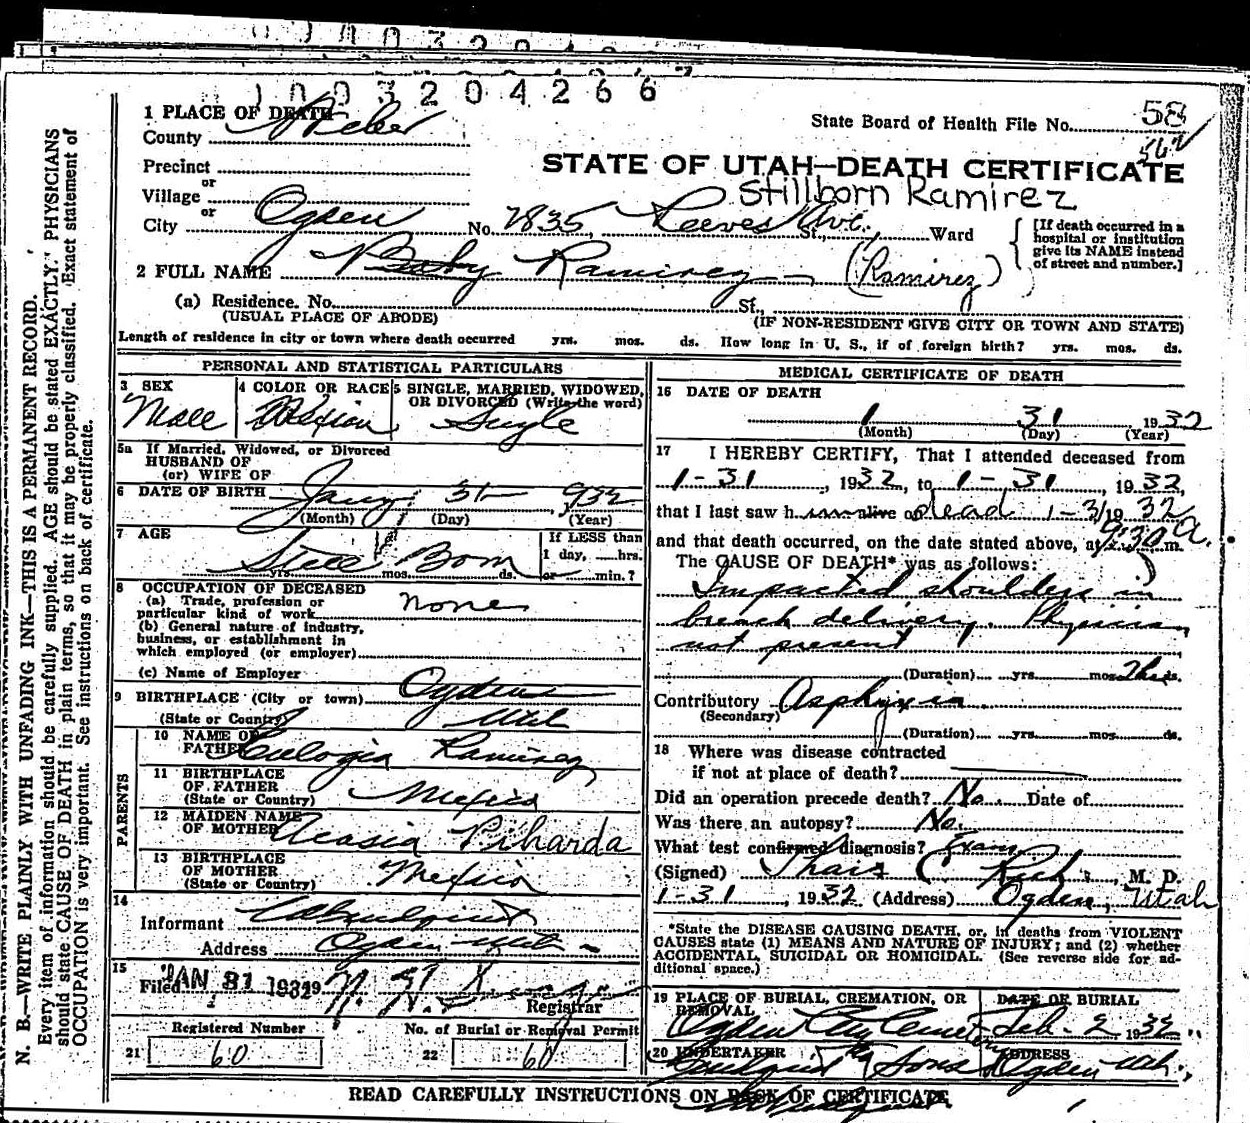 1003204266
1 PLACE OF DEATH
County Weber
State Board of Health File No. 58
562
Precinct
or
STATE OF UTAH—DEATH CERTIFICATE
Stillborn Ramirez
Village
or
City Ogden No. 2835 Reeves Ave. St., Ward
[If death occurred in a hospital or institution give its NAME instead of street and number.]
2 FULL NAME Baby Ramirez (Ramirez)
(a) Residence. No. St.,
(USUAL PLACE OF ABODE) (IF NON-RESIDENT GIVE CITY OR TOWN AND STATE)
Length of residence in city or town where death occurred yrs. mos. ds. How long in U. S., if of foreign birth? yrs. mos. ds.
PERSONAL AND STATISTICAL PARTICULARS
3 SEX 4 COLOR OR RACE 5 SINGLE, MARRIED, WIDOWED, OR DIVORCED (Write the word)
Male Mexican Single
5a If Married, Widowed, or Divorced
HUSBAND OF
(or) WIFE OF
6 DATE OF BIRTH Jany 31 932
(Month) (Day) (Year)
7 AGE If LESS than
Still Born 1 day, hrs.
yrs. mos. ds. or min.?
8 OCCUPATION OF DECEASED
(a) Trade, profession or
particular kind of work none
(b) General nature of industry,
business, or establishment in
which employed (or employer)
(c) Name of Employer
9 BIRTHPLACE (City or town) Ogden
(State or Country) Utah
PARENTS
10 NAME OF
FATHER Eulogia Ramirez
11 BIRTHPLACE
OF FATHER
(State or Country) Mexico
12 MAIDEN NAME
OF MOTHER Acasia Picharda
13 BIRTHPLACE
OF MOTHER
(State or Country) Mexico
14
Informant
Address Ogden Utah
15
Filed JAN 31 1932 19
Registrar
Registered Number No. of Burial or Removal Permit
21 60 22 60
MEDICAL CERTIFICATE OF DEATH
16 DATE OF DEATH
1 31 1932
(Month) (Day) (Year)
17 I HEREBY CERTIFY, That I attended deceased from
1-31, 1932, to 1-31, 1932,
that I last saw h alive on dead 1-31 19 32
and that death occurred, on the date stated above, at 9:30 a. m.
The CAUSE OF DEATH* was as follows:
Impacted shoulders in
breach delivery. Physician
not present
(Duration) yrs. mos. ds.
Contributory Asphyxia.
(Secondary)
(Duration) yrs. mos. ds.
18 Where was disease contracted
if not at place of death?
Did an operation precede death? No. Date of
Was there an autopsy? No.
What test confirmed diagnosis? Exam
(Signed) M. D.
1-31, 1932 (Address) Ogden, Utah
*State the DISEASE CAUSING DEATH, or, in deaths from VIOLENT
CAUSES state (1) MEANS AND NATURE OF INJURY; and (2) whether
ACCIDENTAL, SUICIDAL OR HOMICIDAL. (See reverse side for ad-
ditional space.)
19 PLACE OF BURIAL, CREMATION, OR REMOVAL DATE OF BURIAL
Ogden City Cemetery Feb. 2 1932
20 UNDERTAKER ADDRESS
& Sons Ogden Utah
READ CAREFULLY INSTRUCTIONS ON BACK OF CERTIFICATE
N. B.—WRITE PLAINLY WITH UNFADING INK—THIS IS A PERMANENT RECORD.
Every item of information should be carefully supplied. AGE should be stated EXACTLY. PHYSICIANS
should state CAUSE OF DEATH in plain terms, so that it may be properly classified. Exact statement of
OCCUPATION is very important. See instructions on back of certificate.